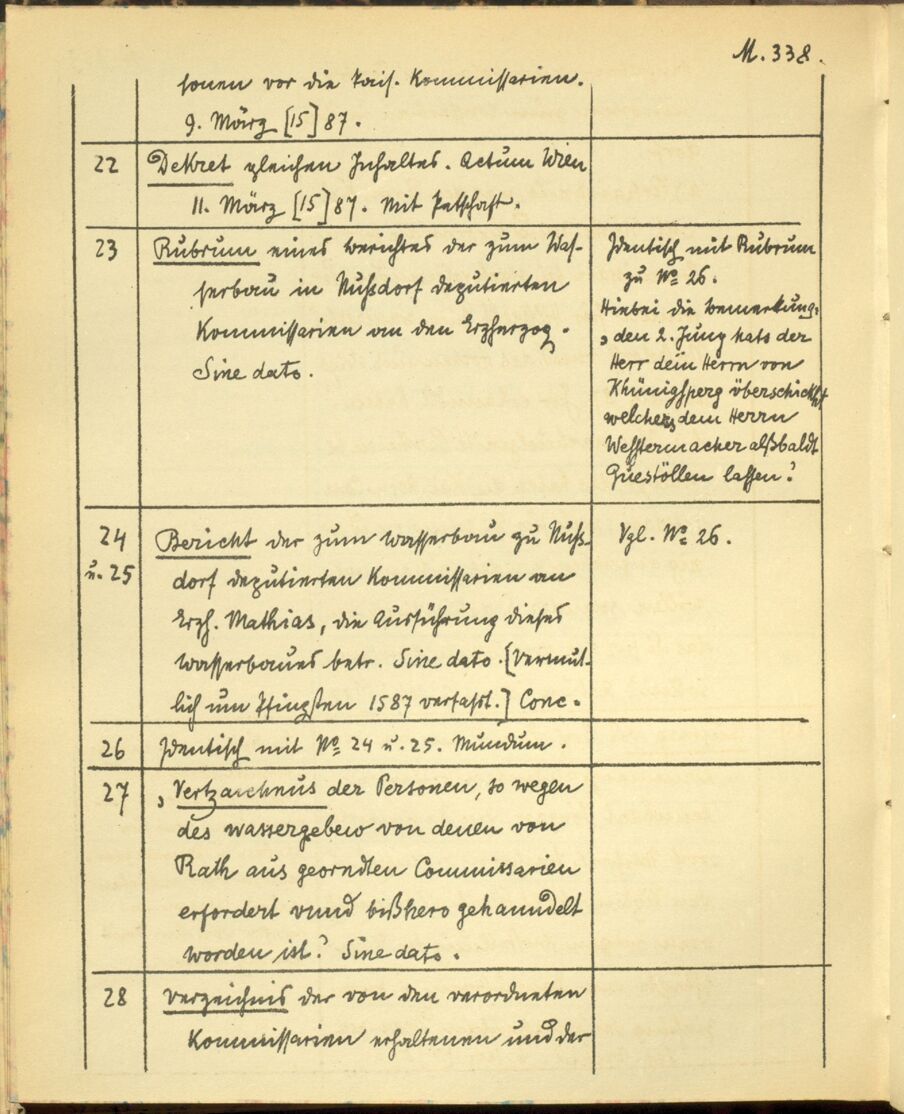 M. 338.
sonen vor die kais. Kommissarien.
9. März [15]87.
22
Dekret gleichen Inhaltes. Actum Wien
11. März [15]87. Mit Petschaft.
23
Rubrum eines Berichtes der zum Was-
serbau in Nußdorf deputierten
Kommissarien an den Erzherzog.
Sine dato.
Identisch mit Rubrum
zu No 26.
Hiebei die Bemerkung:
„den 2. Juny hats der
Herr dem Herrn von
Khünigsperg überschickht
welches dem Herrn
Westermacher alßbaldt
Zuestöllen lassen“
24
u. 25
Bericht der zum Wasserbau zu Nuß-
dorf deputierten Kommissarien an
Erzh. Mathias, die Ausführung dieses
Wasserbaues betr. Sine dato. [Vermut-
lich um Pfingsten 1587 verfasst.] Conc.
Vgl. No 26.
26
Identisch mit No 24 u. 25. Mundum.
27
„Vertzaichnus der Personen, so wegen
des wassergebew von denen von
Rath aus georndten Commissarien
erfordert vnnd bißhero gehanndelt
worden ist.“ Sine dato.
28
Verzeichnis der von den verordneten
Kommissarien erhaltenen und der